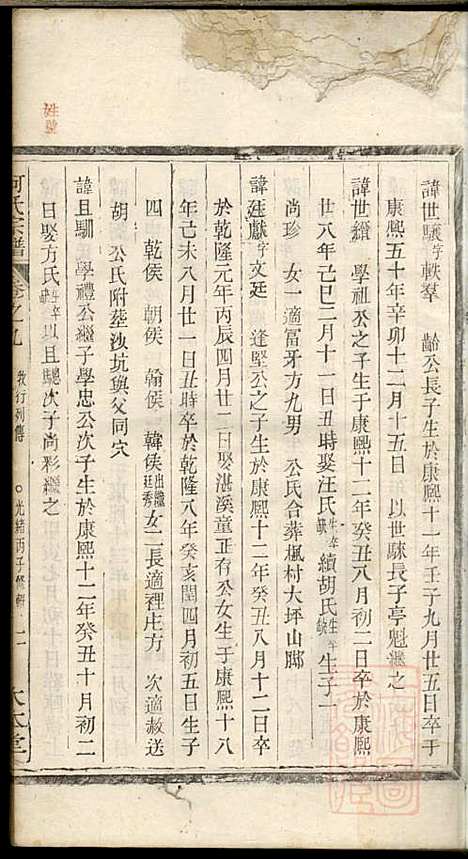 諱世驤字軼羣 齡公長子生於康熙十一年壬子九月廿五日卒于
康熙五十年辛卯十二月十五日 以世騋長子亭魁繼之
諱世纘 學祖公之子生于康熙十二年癸丑八月初二日卒於康熙
廿八年己巳二月十一日丑時娶汪氏生卒缺續胡氏生卒缺生子一
尚珍 女一適富牙方九男 公氏合葬楓村大坪山脚
諱廷獻字文廷 逢堅公之子生於康熙十二年癸丑八月十二日卒
於乾隆元年丙辰四月廿二日娶湛溪童正有公女生于康熙十八
年己未八月廿一日丑時卒於乾隆八年癸亥閏四月初五日生子
四 乾侯 朝侯 翰侯 韓侯出繼廷秀女二長適裡庄方 次適敖送
胡 公氏附塟沙坑與父同穴
諱且馴 學禮公繼子學忠公次子生於康熙十二年癸丑十月初二
日娶方氏生卒缺以且驄次子尚彩繼之
何氏宗譜 卷之九 敦行列傳 ○光緒丙子修輯 十一 大本堂
姓氏